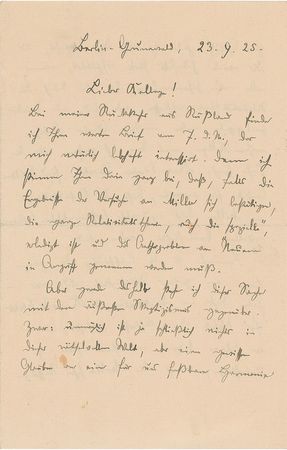 Berlin-Grunewald, 23.9.25.
Lieber Kollege!
Bei meiner Rückkehr aus Rußland finde
ich Ihren werten Brief vom 7. d. M., der
mich natürlich lebhaft interessiert. Denn ich
stimme Ihnen darin ganz bei, daß, falls die
Ergebnisse der Versuche von Miller sich bestätigen,
die ganze Relativitätstheorie, auch die „spezielle“,
erledigt ist und das Ätherproblem von Neuem
in Angriff genommen werden muß.
Aber gerade deshalb steh ich dieser Sache
mit dem äußersten Skeptizismus gegenüber.
Zwar: unmöglich ist ja schließlich nichts in
dieser rätselvollen Welt, aber einen gewissen
Glauben an eine für uns faßbare Harmonie